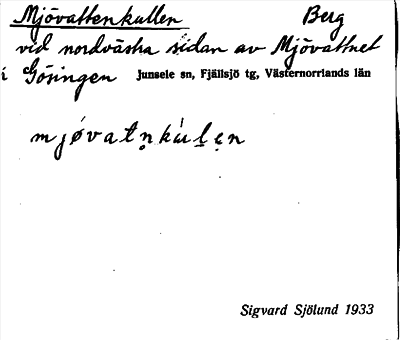 Mjövattenkullen Berg
vid nordvästra sidan av Mjövattnet
i Gösingen Junsele sn, Fjällsjö tg, Västernorrlands län
mjǿvatn̥kùl̥ęn
Sigvard Sjölund 1933